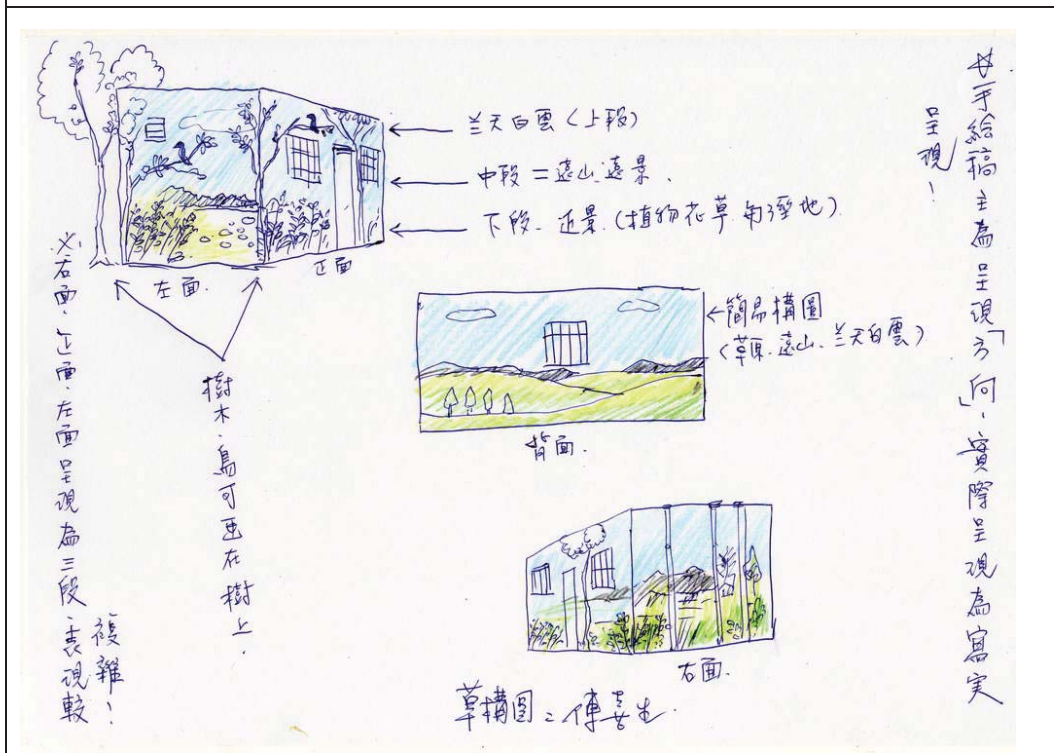 ☆手繪稿主為呈現「方向」，實際呈現為寫实
呈現！
兰天白雲（上段）
中段＝遠山、遠景．
下段．近景．（植物花草
左面．
正面
※右面．正面．左面呈現為三段．表現較
複雜！
樹木．鳥可畫在樹上．
簡易構圖
（草原．遠山、兰天白雲）
背面．
右面．
草構圖：傅